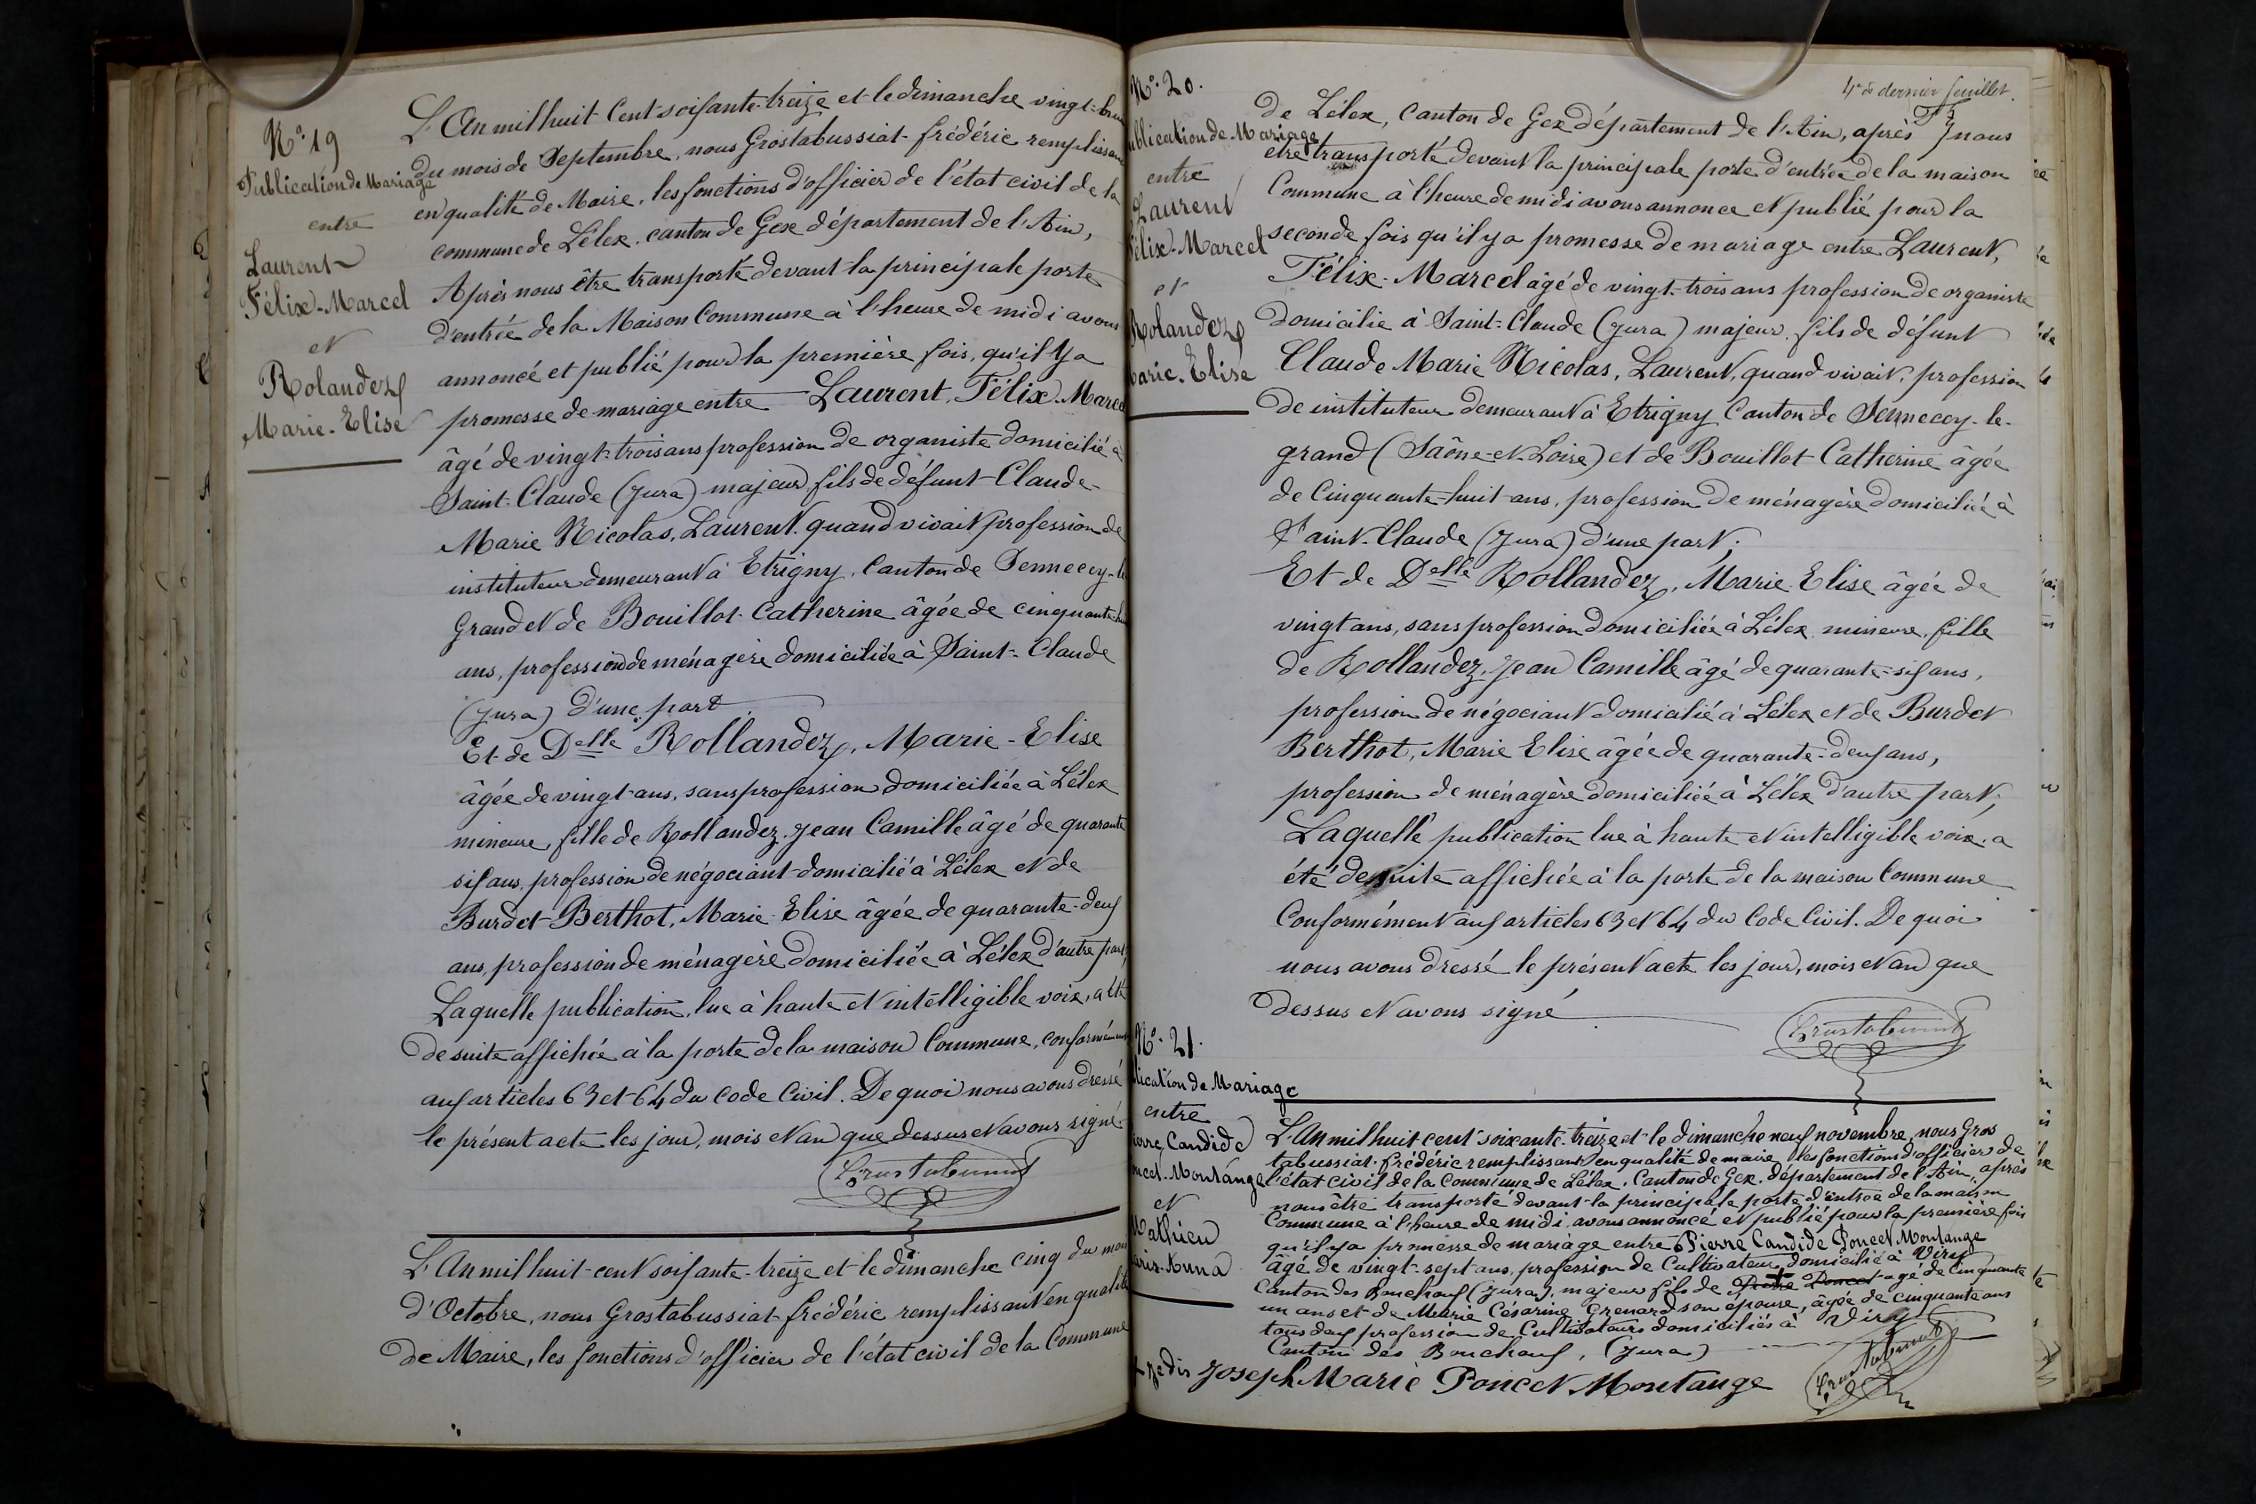 N° 19
Publication de Mariage
entre
Laurent
Félix-Marcel
et
Rolandez
Marie-Elise
L'An mil huit Cent soisante-treize et le dimanche vingt-huit
du mois de Septembre, nous Grostabussiat frédéric remplissant
en qualité de Maire, les fonctions d'officier de l'état civil de la
commune de Lélex, canton de Gex département de l'Ain,
Après nous être transporté devant la principale porte
d'entrée de la Maison Commune à l'heure de midi avons
annoncé et publié pour la première fois, qu'il y a
promesse de mariage entre Laurent, Félix-Marcel
âgé de vingt-trois ans profession de organiste domicilié à
Saint-Claude (Jura) majeur, fils de défunt Claude-
Marie Nicolas, Laurent. quand vivait profession de
instituteur demeurant à Etrigny, Canton de Sennecey-le
Grand et de Bouillot Catherine âgée de cinquante-huit
ans, profession de ménagère domiciliée à Saint-Claude
(Jura) d'une part
Et de Delle Rollandez, Marie-Elise
âgée de vingt-ans, sans profession domiciliée à Lélex
mineure, fille de Rollandez, Jean Camille âgé de quarante
sis ans, profession de négociant domicilié à Lélex et de
Burdet-Berthot, Marie-Elise âgée de quarante-deus
ans, profession de ménagère domiciliée à Lélex d'autre part,
Laquelle publication, lue à haute et intelligible voix, a été
de suite affichée à la porte de la maison Commune, conformément
aus articles 63 et 64 du Code Civil. De quoi nous avons dressé
le présent acte les jour, mois et an que dessus et avons signé.
Grostabussiat
L'An mil huit-cent soisante-treize et le dimanche cinq du mois
d'Octobre, nous Grostabussiat frédéric remplissant en qualité
de Maire, les fonctions d'officier de l'état civil de la Commune
4e & dernier feuillet.
N° 20.
ublication de Mariage
entre
Laurent
Félix-Marcel
et
Rolandez
Marie-Elise
de Lélex, Canton de Gex département de l'Ain, après nous
etre transporté devant la principale porte d'entrée de la maison
Commune à l'heure de midi avons annoncé et publié pour la
seconde fois qu'il y a promesse de mariage entre Laurent,
Félix-Marcel âgé de vingt-trois ans profession de organiste
domicilié à Saint-Claude (Jura) majeur, fils de défunt
Claude Marie Nicolas, Laurent, quand vivait, profession
de instituteur demeurant à Etrigny Canton de Sennecey-le-
grand (Saône-et-Loire) et de Bouillot Catherine âgée
de Cinquante-huit ans, profession de ménagère domiciliée à
Saint-Claude (Jura) d'une part;
Et de Delle Rollandez, Marie Elise âgée de
vingt ans, sans profession domiciliée à Lélex mineure, fille
de Rollandez, Jean Camille âgé de quarante-sis ans,
profession de négociant domicilié à Lélex et de Burdet
Berthot, Marie Elise âgée de quarante-deus ans,
profession de ménagère domiciliée à Lélex d'autre part;
Laquelle publication lue à haute et intelligible voix, a
été de suite affichée à la porte de la maison Commune
Conformément aus articles 63 et 64 du Code Civil. De quoi
nous avons dressé le présent acte les jour, mois et an que
dessus et avons signé
Grostabussiat
N° 21.
lication de Mariage
entre
Pierre Candide
oncet-Montange
et
Mathieu
Marie-Anna
L'An mil huit cent soixante-treize et le dimanche neuf novembre, nous Gros
tabussiat frédéric remplissant en qualité de maire les fonctions d'officier de
l'état civil de la Commune de Lélex, Canton de Gex, département de l'Ain, après
nous être transporté devant la principale porte d'entrée de la maison
Commune à l'heure de midi, avons annoncé et publié pour la première fois
qu'il y a promesse de mariage entre Pierre Candide Poncet Montange
âgé de vingt-sept ans, profession de Cultivateur domicilié à Viry
Canton des Bouchouf (Jura), majeur fils de Pierre Poncet agé de Cinquante
un ans et de Marie Césarine Grenard son épouse, âgée de cinquante ans
tous deus profession de Cultivateurs domiciliés à Viry
Canton des Bouchouf, (Jura)
Je dis Joseph Marie Poncet Montange
Grostabussiat